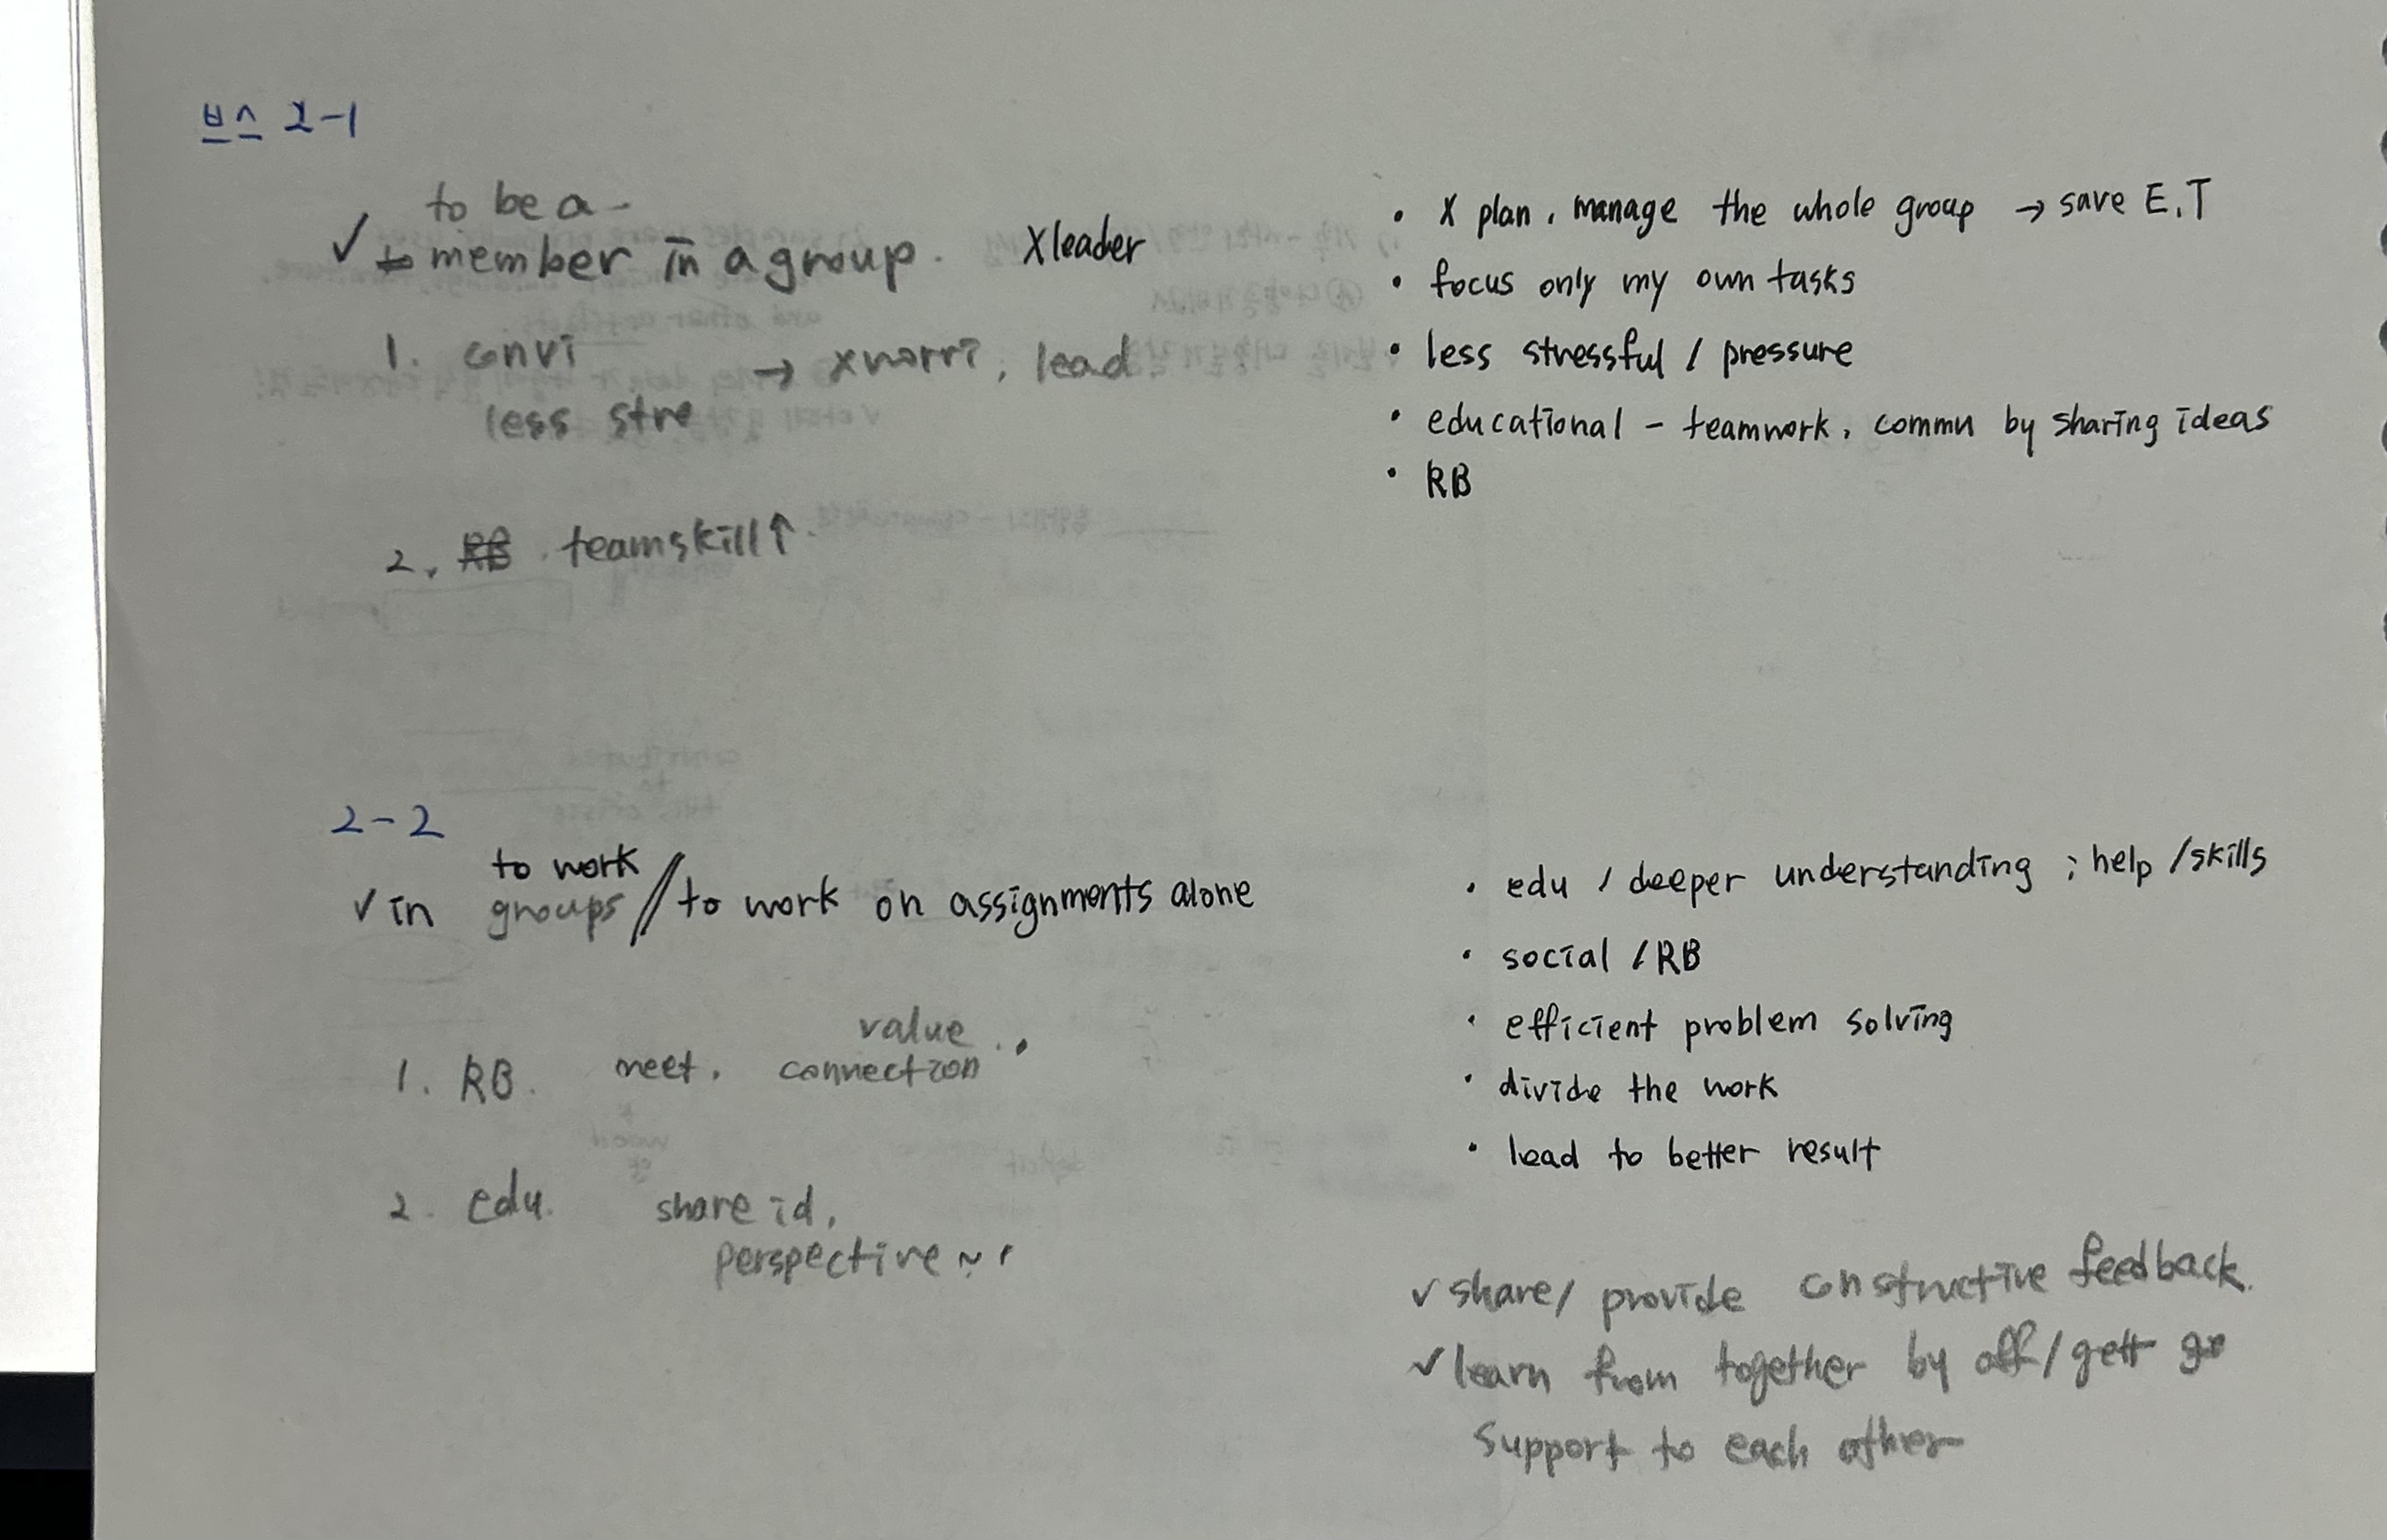 브스 2-1
to be a -
✓ to member in a group. X leader
1. convi → x worri, lead
less stre
2. RB. teamskill↑.
• X plan, manage the whole group → save E, T
• focus only my own tasks
• less stressful / pressure
• educational - teamwork, commu by sharing ideas
• RB
2-2
to work
✓ in groups // to work on assignments alone
value
1. RB. meet, connection
2. edu. share id,
perspective ~
• edu / deeper understanding ; help / skills
• social / RB
• efficient problem solving
• divide the work
• lead to better result
✓ share / provide constructive feedback.
✓ learn from together by off / gett
support to each other